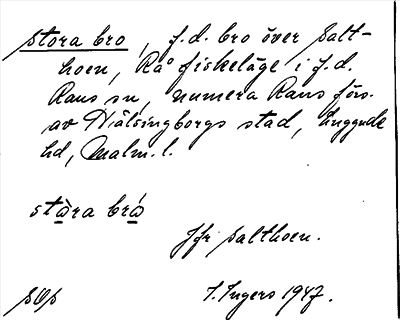 stora bro, f.d. bro över Salt-
hoen, Rå fiskeläge i f.d.
Raus sn, numera Raus förs.
av Hälsingborgs stad, Luggude
hd, Malm. l.
stàra brá
Jfr Salthoen.
SOs I. Ingers 1947.